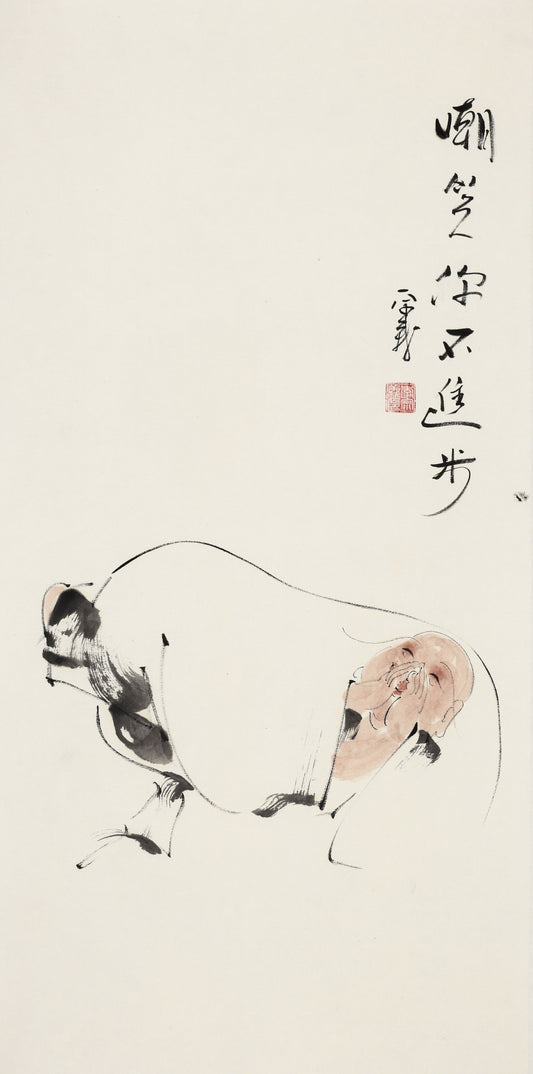 嘲笑你不進步